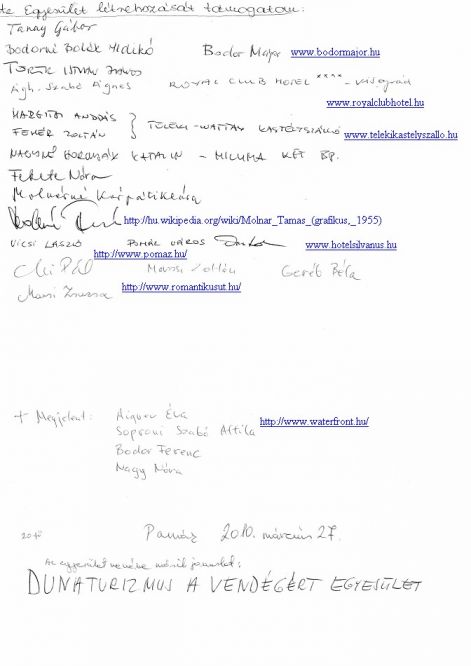 te Egyesület létrehozását támogatom:
Tanay Gábor
Bodorné Balák Ildikó Bodor Major www.bodormajor.hu
TÖRÖK ISTVÁN
Ágh. Szabó Ágnes ROYAL CLUB HOTEL **** - VISEGRÁD
www.royalclubhotel.hu
MARGITAI ANDRÁS
FEHÉR ZOLTÁN } TELEKI-WATTAY KASTÉLYSZÁLLÓ www.telekikastelyszallo.hu
KATALIN - KFT BP.
Fekete Nóra
Molnárné Kárpáti Klára
http://hu.wikipedia.org/wiki/Molnar_Tamas_(grafikus,_1955)
VICSI LÁSZLÓ POMÁZ VÁROS www.hotelsilvanus.hu
http://www.pomaz.hu/
Marosi Zoltán Geréb Béla
Zsuzsa http://www.romantikusut.hu/
+ Megjelent: Aigner Éva
http://www.waterfront.hu/
Soproni Szabó Attila
Bodor Ferenc
Nagy Nóra
Pomáz 2010. március 27.
Az egyesület nevére másik javaslat:
DUNATURIZMUS A VENDÉGÉRT EGYESÜLET